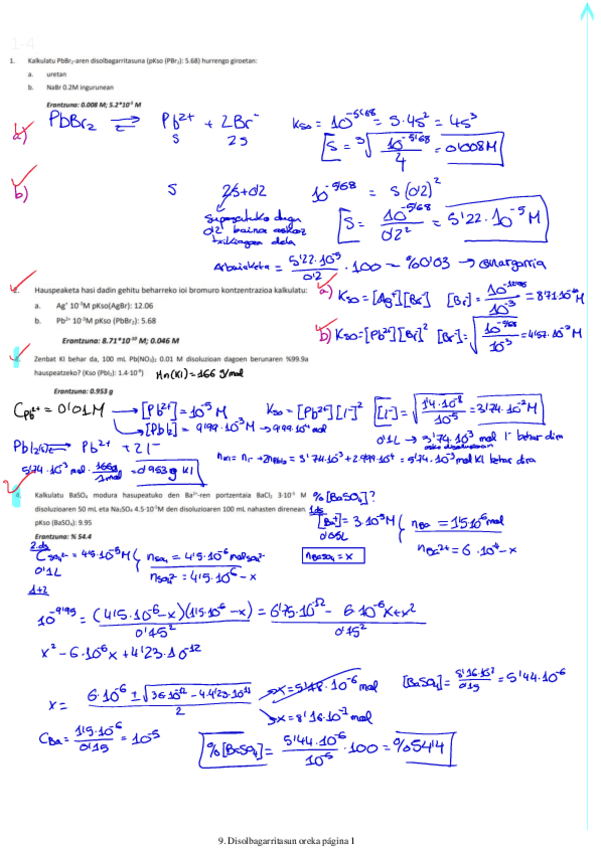 1-4
1. Kalkulatu PbBr₂-aren disolbagarritasuna (pKso (PBr₂): 5.68) hurrengo giroetan:
a. uretan
b. NaBr 0.2M ingurunean
Erantzuna: 0.008 M; 5.2*10⁻⁵ M
PbBr₂ ⇌ Pb²⁺ + 2Br⁻ Kso = 10^-5'68 = S·4S² = 4S³
a) S 2S S = ³√(10^-5'68 / 4) = 0'008M
b) S 2S+0'2 10^-5'68 = S(0'2)²
Suposatuko dugu
0'2 baino askoz
txikiagoa dela
S = 10^-5'68 / 0'2² = 5'22·10⁻⁵ M
= 5'22·10⁻⁵ / 0'2 · 100 = %0'03 → onargarria
Hauspeaketa hasi dadin gehitu beharreko ioi bromuro kontzentrazioa kalkulatu:
a. Ag⁺ 10⁻³M pKso(AgBr): 12.06
b. Pb²⁺ 10⁻³M pKso (PbBr₂): 5.68
Erantzuna: 8.71*10⁻¹⁰ M; 0.046 M
a) Kso = [Ag⁺][Br⁻] [Br⁻] = 10^-12'06 / 10⁻³ = 8'71·10⁻¹⁰ M
b) Kso = [Pb²⁺][Br⁻]² [Br⁻] = √(10^-5'68 / 10⁻³) = 4'57·10⁻² M
Zenbat KI behar da, 100 mL Pb(NO₃)₂ 0.01 M disoluzioan dagoen berunaren %99.9a
hauspeatzeko? (Kso (PbI₂): 1.4·10⁻⁸) Mm(KI) = 166 g/mol
Erantzuna: 0.953 g
C Pb²⁺ = 0'01M → [Pb²⁺] = 10⁻⁵ M Kso = [Pb²⁺][I⁻]² [I⁻] = √(1'4·10⁻⁸ / 10⁻⁵) = 3'74·10⁻² M
→ [PbI₂] = 9'99·10⁻³ M → 9'99·10⁻⁴ mol
0'1L → 3'74·10⁻³ mol I⁻ behar dira
PbI₂(s) ⇌ Pb²⁺ + 2I⁻
5'74·10⁻³ mol · 166g / 1mol = 0'953 g KI
= 3'74·10⁻³ + 2·9'99·10⁻⁴ = 5'74·10⁻³ mol KI behar dira
Kalkulatu BaSO₄ modura hauspeatuko den Ba²⁺-ren portzentaia BaCl₂ 3·10⁻⁵ M
disoluzioaren 50 mL eta Na₂SO₄ 4.5·10⁻⁵M den disoluzioaren 100 mL nahasten direnean.
pKso (BaSO₄): 9.95
Erantzuna: % 54.4
% [BaSO₄]?
1.da
[Ba²⁺] = 3·10⁻⁵ M
0'05L
n Ba = 1'5·10⁻⁶ mol
n Ba²⁺ =
2.da
C SO₄²⁻ = 4'5·10⁻⁵ M
0'1L
n SO₄ = 4'5·10⁻⁶ mol SO₄²⁻
n SO₄²⁻ = 4'5·10⁻⁶ − x
n BaSO₄ = x
1+2
10^-9'95 = (4'5·10⁻⁶ − x)(1'5·10⁻⁶ − x) / 0'15² = 6'75·10⁻¹² − 6·10⁻⁶x + x² / 0'15²
x² − 6·10⁻⁶x + 4'23·10⁻¹²
x = 6·10⁻⁶ ± √(36·10⁻¹² − 4·4'23·10⁻¹²) / 2
x = 5'18·10⁻⁶ mol
x = 8'16·10⁻⁷ mol
[BaSO₄] = 8'16·10⁻⁷ / 0'15 = 5'44·10⁻⁶
C Ba = 1'5·10⁻⁶ / 0'15 = 10⁻⁵
% [BaSO₄] = 5'44·10⁻⁶ / 10⁻⁵ · 100 = %54'4
9. Disolbagarritasun oreka página 1